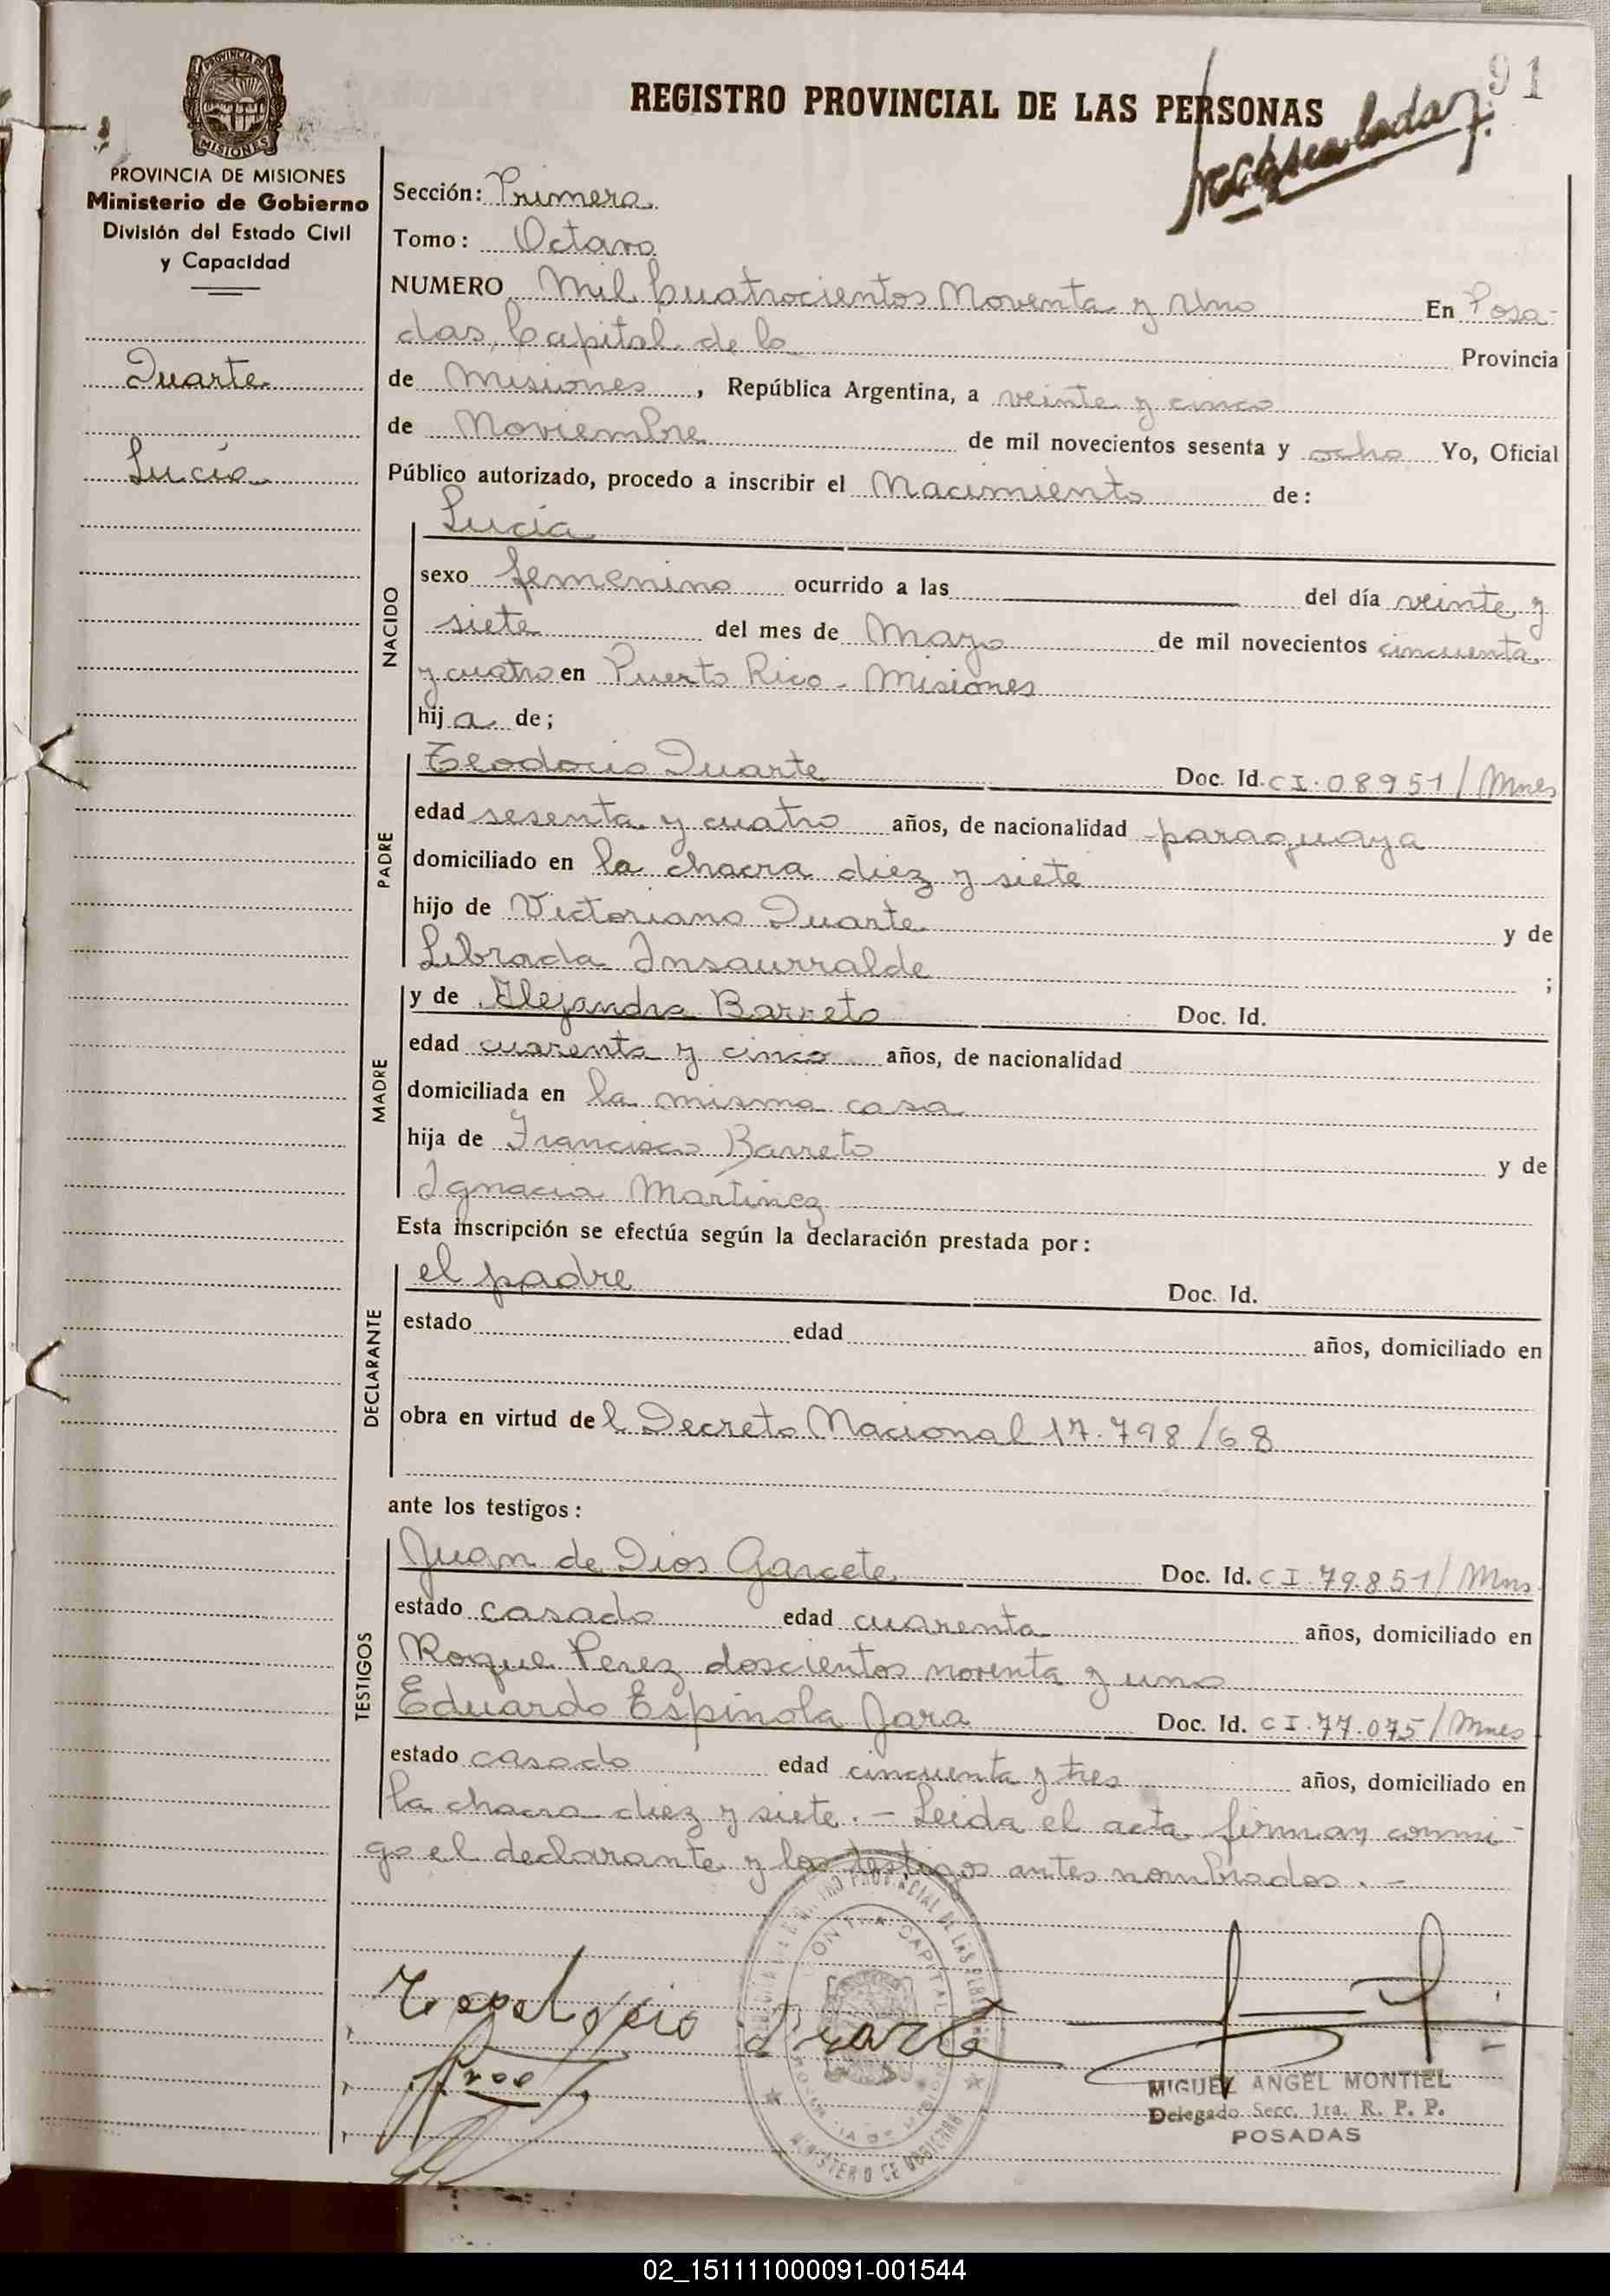 91
REGISTRO PROVINCIAL DE LAS PERSONAS
PROVINCIA DE
MISIONES
PROVINCIA DE MISIONES
Ministerio de Gobierno
División del Estado Civil
y Capacidad
Duarte
Lucía
Sección: Primera
Tomo: Octavo
NUMERO Mil Cuatrocientos Noventa y Uno En Posa-
das, Capital de la Provincia
de Misiones, República Argentina, a veinte y cinco
de Noviembre de mil novecientos sesenta y ocho Yo, Oficial
Público autorizado, procedo a inscribir el Nacimiento de:
NACIDO
Lucía
sexo femenino ocurrido a las del día veinte y
siete del mes de Mayo de mil novecientos cincuenta
y cuatro en Puerto Rico - Misiones
hija de;
PADRE
Teodocio Duarte Doc. Id. CI. 08951/Mnes
edad sesenta y cuatro años, de nacionalidad paraguaya
domiciliado en la chacra diez y siete
hijo de Victoriano Duarte y de
Librada Insaurralde ;
MADRE
y de Alejandra Barreto Doc. Id.
edad cuarenta y cinco años, de nacionalidad
domiciliada en la misma casa
hija de Francisco Barreto y de
Ignacia Martínez
Esta inscripción se efectúa según la declaración prestada por:
DECLARANTE
el padre Doc. Id.
estado edad años, domiciliado en
obra en virtud del Decreto Nacional 17.798/68
ante los testigos:
TESTIGOS
Juan de Dios Garcete Doc. Id. CI. 79.851/Mns
estado casado edad cuarenta años, domiciliado en
Roque Perez doscientos noventa y uno
Eduardo Espinola Jara Doc. Id. CI. 77.075/Mnes
estado casado edad cincuenta y tres años, domiciliado en
la chacra diez y siete.- Leida el acta firman conmi-
go el declarante y los testigos antes nombrados.-
MIGUEL ANGEL MONTIEL
Delegado Secc. 1ra. R. P. P.
POSADAS
02_151111000091-001544